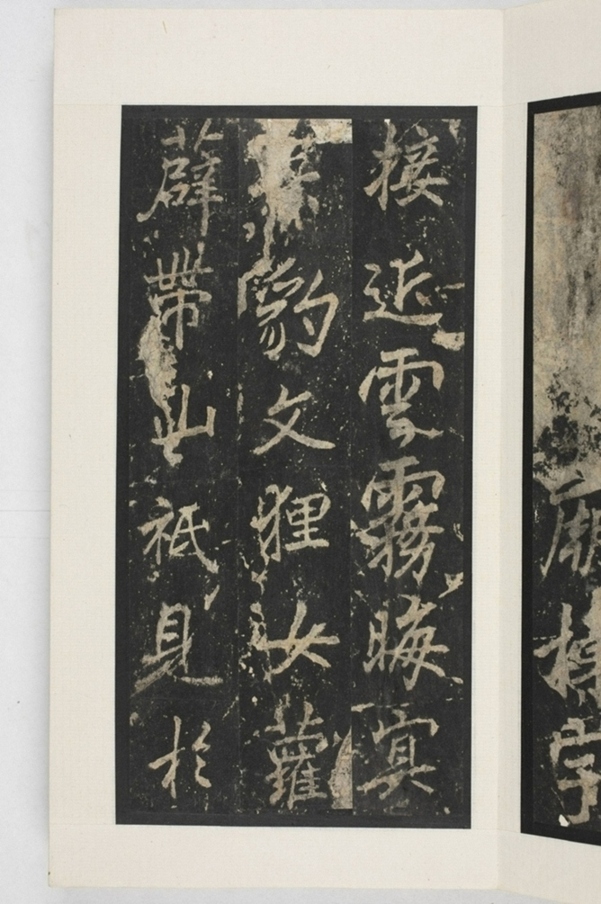 接近雲霧晦冥
豹文狸女蘿
薜帶山祇見於